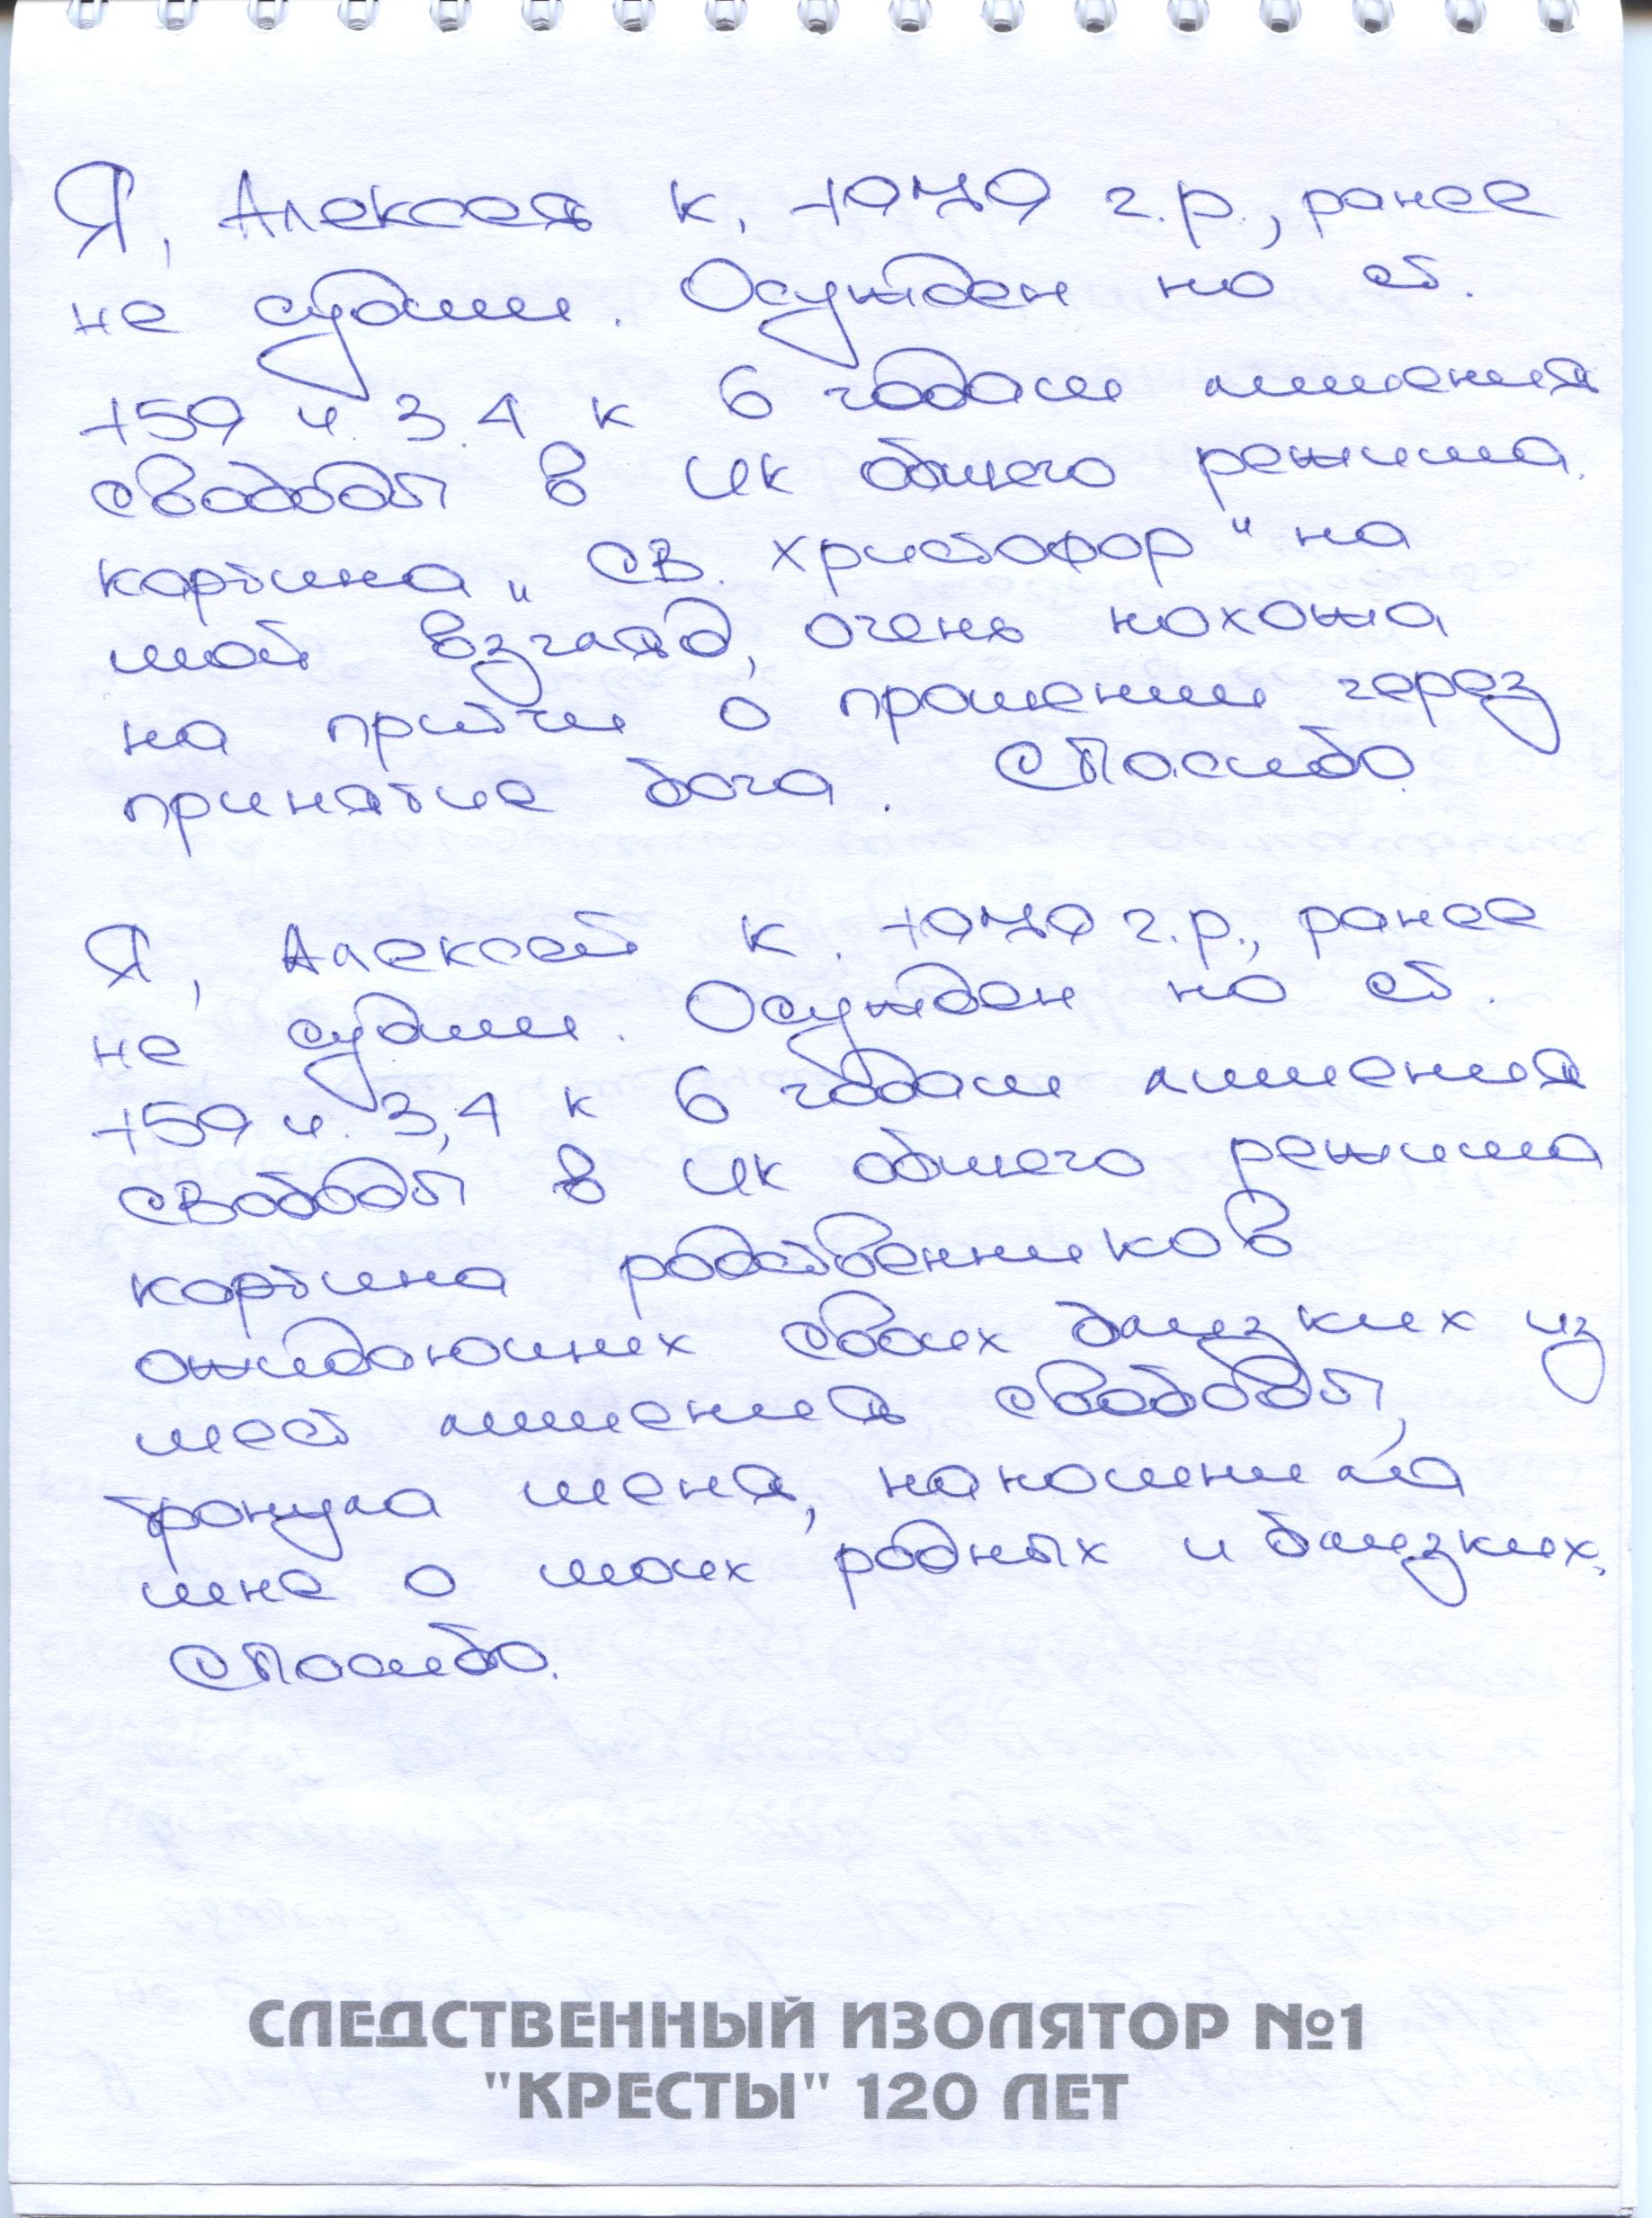 Я, Алексей К, 1979 г.р., ранее
не судим. Осужден по ст.
159 ч. 3.4 к 6 годам лишения
свободы в ИК общего режима.
картина „Св. Христофор" на
мой взгляд, очень похожа
на притчи о прошении через
принятие бога. Спасибо.
Я, Алексей К. 1979 г.р., ранее
не судим. Осужден по ст.
159 ч. 3,4 к 6 годам лишения
свободы в ИК общего режима
картина родственников
ожидающих своих близких из
мест лишения свободы,
тронула меня, напомнила
мне о моих родных и близких.
Спасибо.
СЛЕДСТВЕННЫЙ ИЗОЛЯТОР №1
"КРЕСТЫ" 120 ЛЕТ